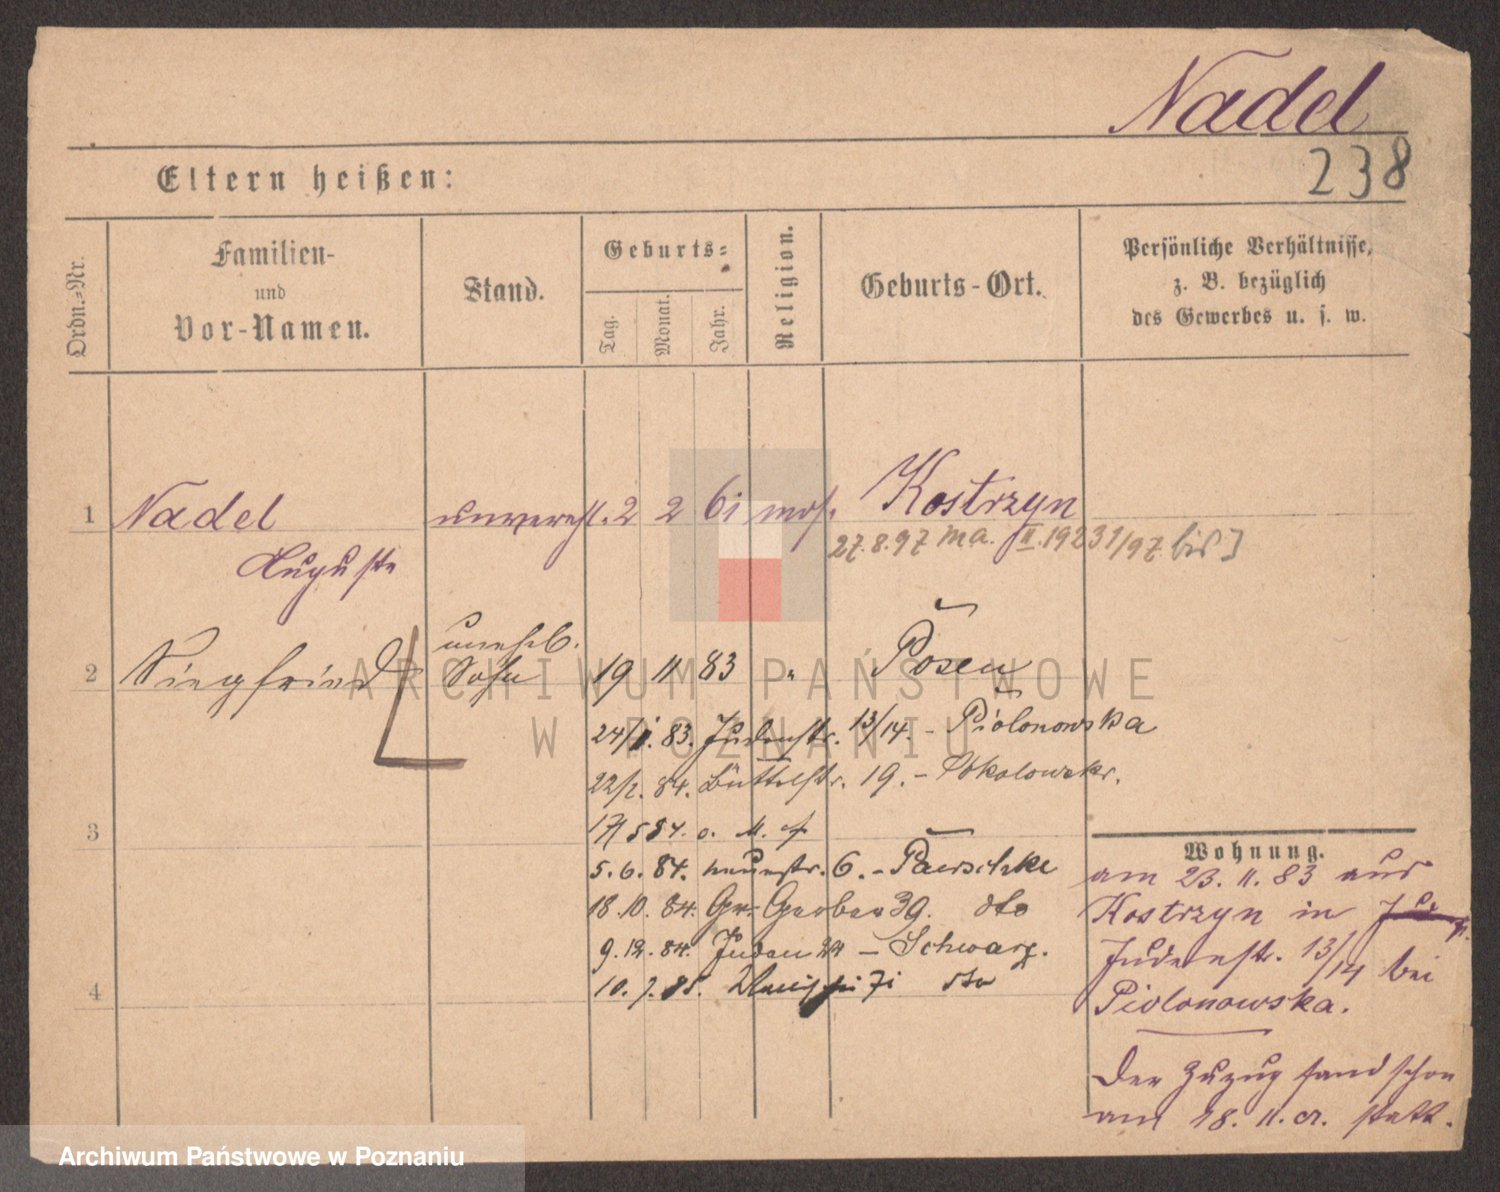 Nadel
238
Eltern heißen:
Ordn.-Nr.
Familien-
und
Vor-Namen.
Stand.
Geburts-
Tag.
Monat.
Jahr.
Religion.
Geburts-Ort.
Persönliche Verhältnisse,
z. B. bezüglich
des Gewerbes u. s. w.
1 Nadel unverehl. 2 2 61 mos. Kostrzyn
Auguste
27.8.97 ma. II.19231/97 bis
unehel.
2 Siegfried Sohn 19 11 83 " Posen
ARCHIWUM PAŃSTWOWE
W POZNANIU
83. Judenstr. 13/14. - Piolonowska
84. Büttelstr. 19. -
3
5.6.84. 6. -
18.10.84. Gr. Gerber 39. dto
9.12.84. Juden - Schwarz.
4
dto
Wohnung.
am 23.11.83 aus
Kostrzyn in
Judenstr. 13/14 bei
Piolonowska.
Der Zuzug fand schon
am 18.11. cr. statt.
Archiwum Państwowe w Poznaniu